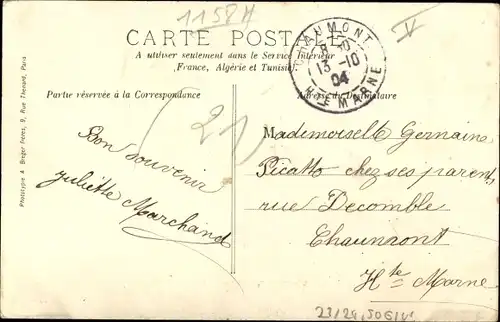 1158H
V
CARTE POSTALE
A utiliser seulement dans le Service Intérieur
(France, Algérie et Tunisie)
CHAUMONT
8-10
13-10
04
Hte MARNE
Partie réservée à la Correspondance
Adresse du Destinataire
21
Bon souvenir
Juliette Marchand
Mademoiselle Germaine
Picatto chez ses parents
rue Decomble
Chaumont
Hte Marne
Phototypie A. Breger Frères, 9, Rue Thenard, Paris